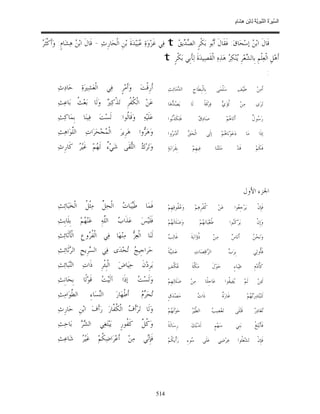 السيرة النبوية لابن هشام
قَالَ ابْنُ إسْحَاقَ: فَقَالَ أَبُو بَكْرٍ الصِّدِّيقُ t فِي غَزْوَةِ عُبَيْدَةَ بْنِ الْحَارِثِ - قَالَ ابْنُ هِشَامٍ: وَأَكْثَرُ
أَهْلِ الْعِلْمِ بِالشِّعْرِ يُنْكِرُ هَذِهِ الْقَصِيدَةَ لِأَبِي بَكْرٍ t
:
أَمِنْ طَيْفِ سَلْمَى بِالْبِطَاحِ الدَّمَائِثِ أَرِقْتَ وَأَمْرٍ فِي الْعَشِيرَةِ حَادِثِ
تَرَى مِنْ لُؤَيٍّ فِرْقَةً لَا يَصُدُّهَا عَنْ الْكُفْرِ تَذْكِيرٌ وَلَا بَعْثُ بَاعِثِ
رَسُولٌ أَتَاهُمْ صَادِقٌ فَتَكَذَّبُوا عَلَيْهِ وَقَالُوا: لَسْتَ فِينَا بِمَاكِثِ
إذَا مَا دَعَوْنَاهُمْ إلَى الْحَقِّ أَدْبَرُوا وَهَرُّوا هَرِيرَ الْمُجْحَرَاتِ اللَّوَاهِثِ
فَكَمْ قَدْ مَتَتْنَا فِيهِمْ بِقَرَابَةٍ وَتَرْكُ التُّقَى شَيْءٌ لَهُمْ غَيْرُ كَارِثِ
الجزء الأول
فَإِنْ يَرْجِعُوا عَنْ كُفْرِهِمْ وَعُقُوقِهِمْ فَمَا طَيِّبَاتُ الْحِلِّ مِثْلُ الْخَبَائِثِ
وَإِنْ يَرْكَبُوا طُغْيَانَهُمْ وَضَلَالَهُمْ فَلَيْسَ عَذَابُ اللَّهِ عَنْهُمْ بِلَابِثِ
وَنَحْنُ أُنَاسٌ مِنْ ذُؤَابَةِ غَالِبٍ لَنَا الْعِزُّ مِنْهَا فِي الْفُرُوعِ الْأَثَائِثِ
فَأُولِي بِرَبِّ الرَّاقِصَاتِ عَشِيَّةً حَرَاجِيجُ تُحْدَى فِي السَّرِيحِ الرَّثَائِثِ
كَأُدْمِ ظِبَاءٍ حَوْلَ مَكَّةَ عُكَّفٍ يَرِدْنَ حِيَاضَ الْبِئْرِ ذَاتِ النَّبَائِثِ
لَئِنْ لَمْ يُفِيقُوا عَاجِلًا مِنْ ضَلَالِهِمْ وَلَسْتُ إذَا آلَيْتُ قَوْلًا بِحَانِثِ
لَتَبْتَدِرَنَّهُمْ غَارَةٌ ذَاتُ مَصْدَقٍ تُحَرِّمُ أَطْهَارَ النِّسَاءِ الطَّوَامِثِ
تُغَادِرُ قَتْلَى تَعْصِبُ الطَّيْرُ حَوْلَهُمْ وَلَا تَرْأَفُ الْكُفَّارَ رَأْفَ ابْنِ حَارِثِ
فَأَبْلِغْ بَنِي سَهْمٍ لَدَيْكَ رِسَالَةً وَكُلَّ كَفُورٍ يَبْتَغِي الشَّرَّ بَاحِثِ
فَإِنْ تَشْعَثُوا عِرْضِي عَلَى سُوءِ رَأْيِكُمْ فَإِنِّي مِنْ أَعْرَاضِكُمْ غَيْرُ شَاعِثِ
514